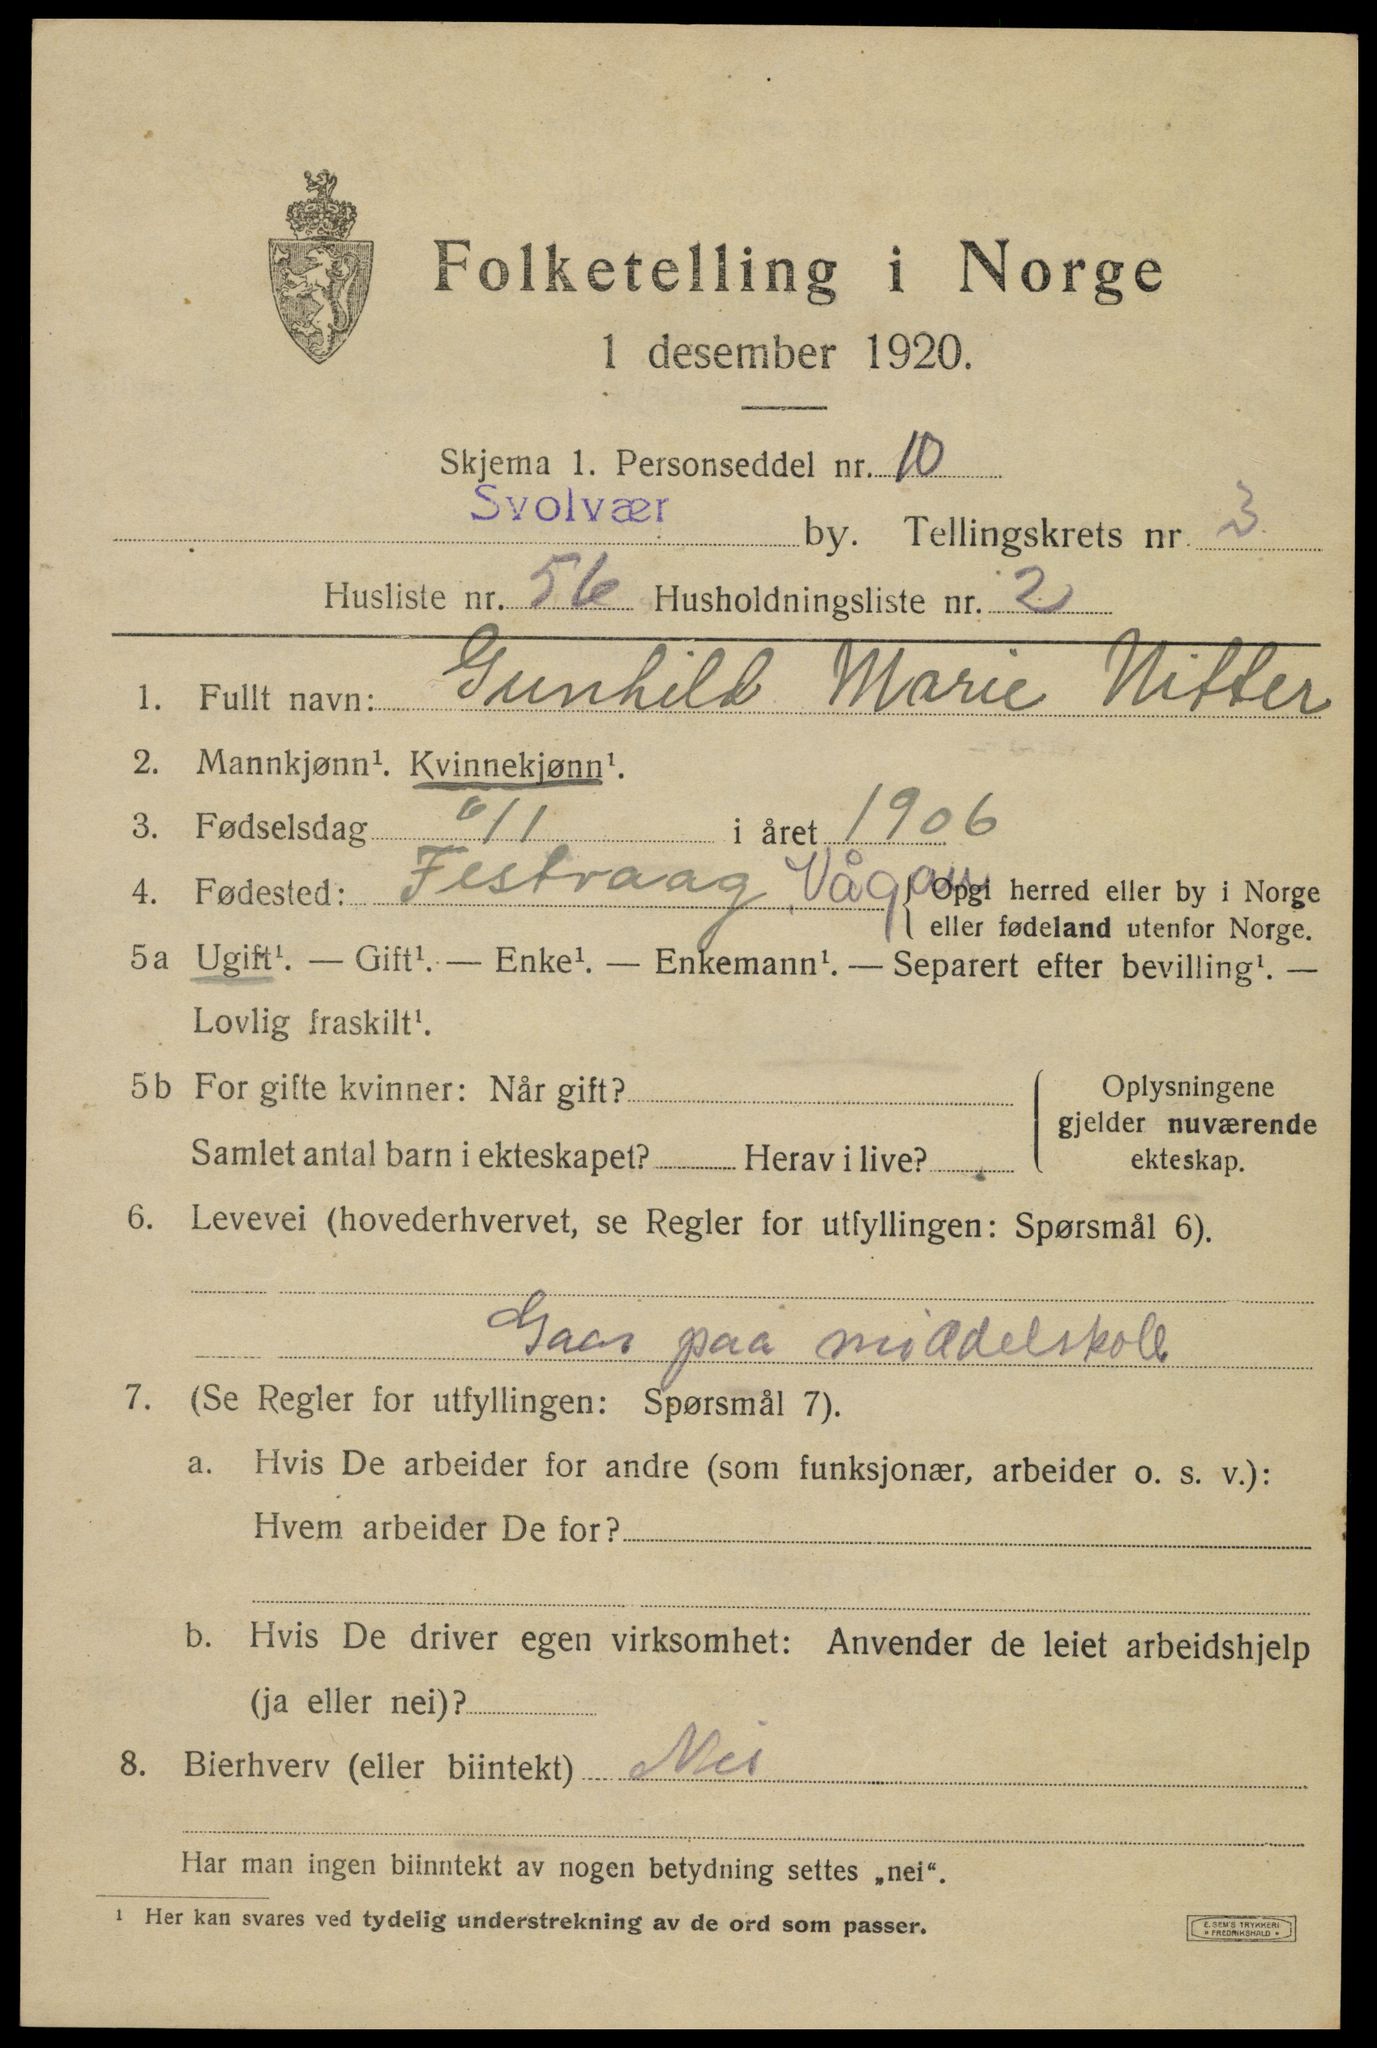 Folketelling i Norge
1 desember 1920.
Skjema 1. Personseddel nr. 10
Svolvær by. Tellingskrets nr 3
Husliste nr. 56 Husholdningsliste nr. 2
1. Fullt navn: Gunhild Marie Nitter
2. Mannkjønn¹. Kvinnekjønn¹.
3. Fødselsdag 6/1 i året 1906
4. Fødested: Festvaag, Vågan { Opgi herred eller by i Norge
eller fødeland utenfor Norge.
5a Ugift¹. — Gift¹. — Enke¹. — Enkemann¹. — Separert efter bevilling¹. —
Lovlig fraskilt¹.
5b For gifte kvinner: Når gift? Oplysningene
gjelder nuværende
Samlet antal barn i ekteskapet? Herav i live? ekteskap.
6. Levevei (hovederhvervet, se Regler for utfyllingen: Spørsmål 6).
Gaar paa middelskole
7. (Se Regler for utfyllingen: Spørsmål 7).
a. Hvis De arbeider for andre (som funksjonær, arbeider o. s. v.):
Hvem arbeider De for?
b. Hvis De driver egen virksomhet: Anvender de leiet arbeidshjelp
(ja eller nei)?
8. Bierhverv (eller biintekt) Nei
Har man ingen biinntekt av nogen betydning settes „nei“.
¹ Her kan svares ved tydelig understrekning av de ord som passer.
E. SEM'S TRYKKERI
* FREDRIKSHALD *